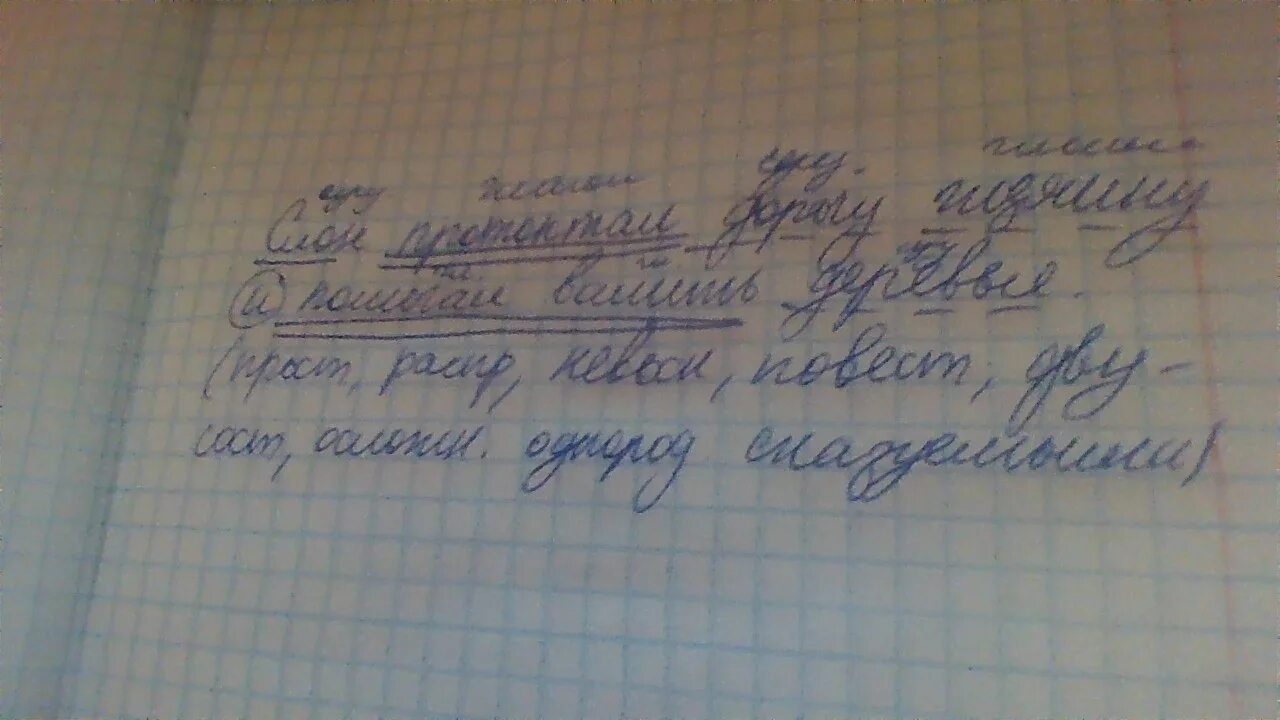 сущ глагол сущ. глагол
Слон протоптал дорогу хозяину
и помогал валить деревья.
(прост, распр, невоскл, повест, дву-
сост, осложн. однород сказуемыми)